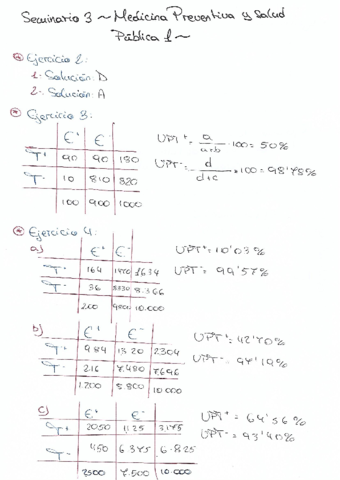 Seminario 3 ~ Medicina Preventiva y Salud
Pública 1 ~
Ejercicio 2:
1. Solución: D
2. Solución: A
Ejercicio 3:
E+ E-
T+ 90 90 180
T- 10 810 820
100 900 1000
VPT+ = a / a+b · 100 = 50%
VPT- = d / d+c · 100 = 98'78%
Ejercicio 4:
a)
E+ E-
T+ 164 1470 1634
T- 36 8330 8.366
200 9800 10.000
VPT+ = 10'03%
VPT- = 99'57%
b)
E+ E-
T+ 984 1320 2304
T- 216 7.480 7.696
1.200 8.800 10.000
VPT+ = 42'70%
VPT- = 97'19%
c)
E+ E-
T+ 2050 1125 3.175
T- 450 6375 6.825
2500 7.500 10.000
VPT+ = 64'56%
VPT- = 93'40%